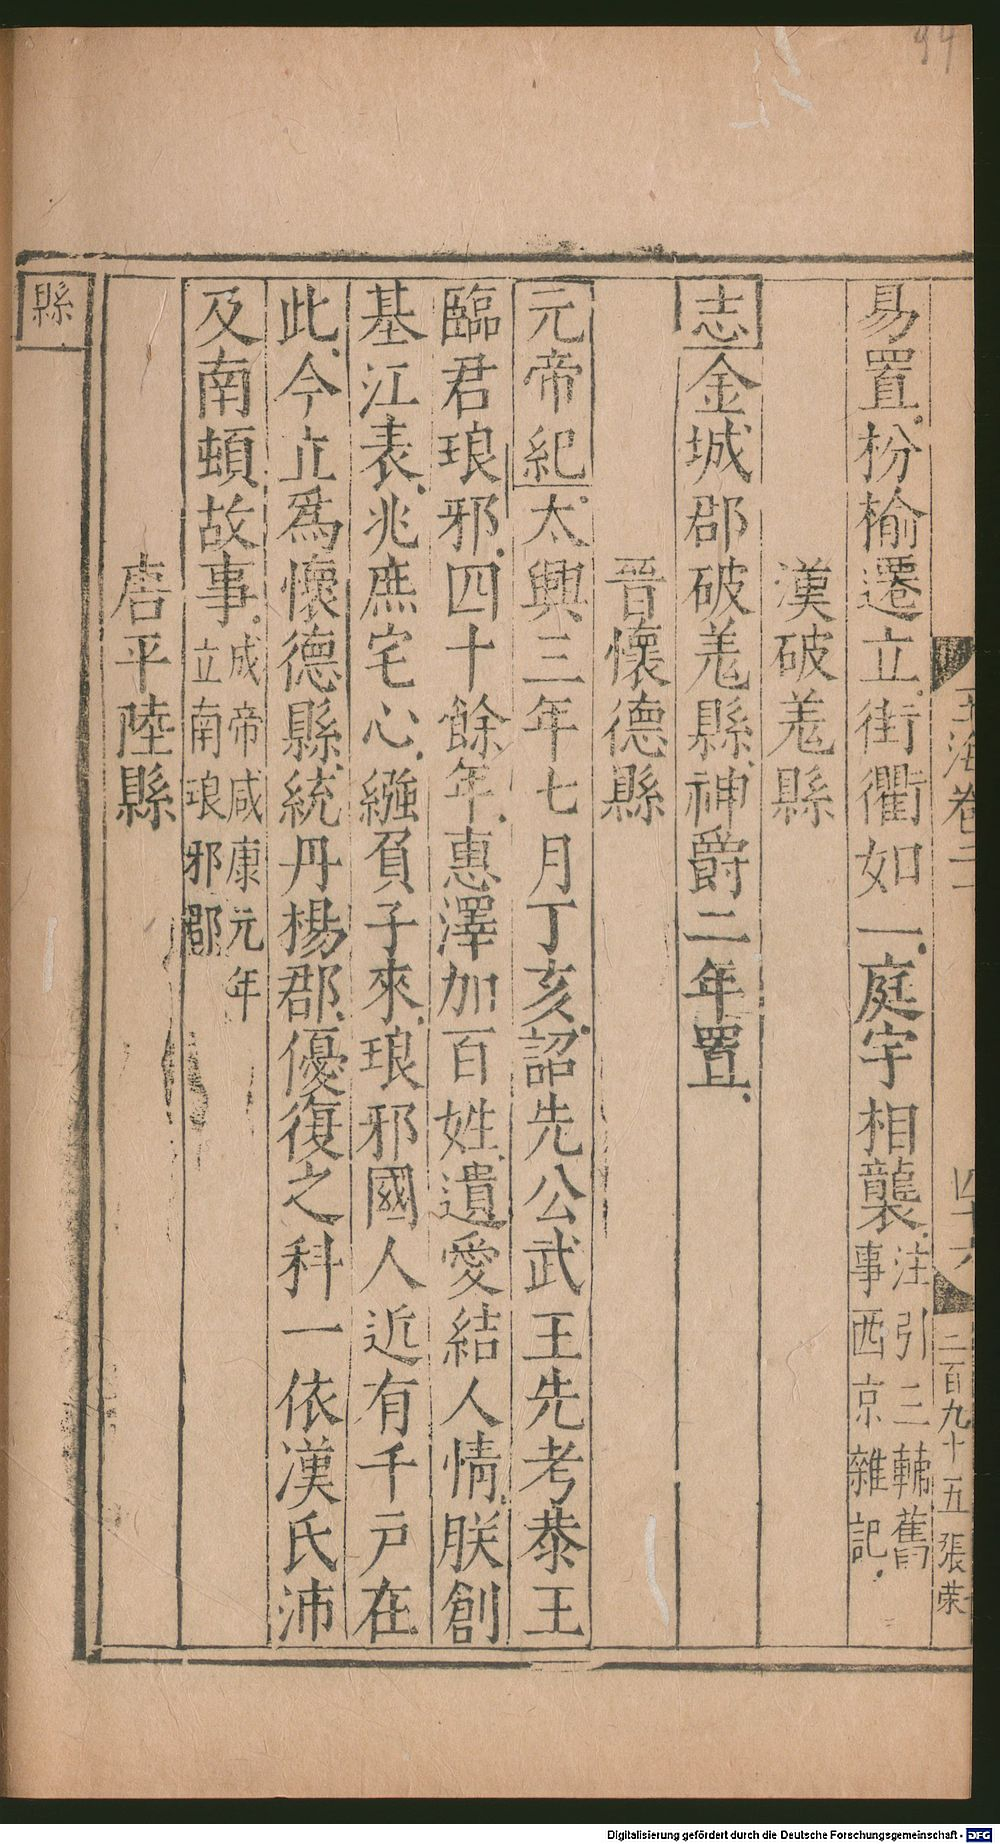 玉海卷二十
四十六
二百九十五 張荣
易置枌榆遷立街衢如一庭宇相襲注引三輔舊事西京雜記
漢破羗縣
志金城郡破羗縣神爵二年置
晉懷德縣
元帝紀太興三年七月丁亥詔先公武王先考恭王
臨君琅邪四十餘年惠澤加百姓遺愛結人情朕創
基江表兆庶宅心繈負子來琅邪國人近有千戸在
此今立爲懷德縣統丹楊郡優復之科一依漢氏沛
及南頓故事成帝咸康元年立南琅邪郡
唐平陸縣
縣
Digitalisierung gefördert durch die Deutsche Forschungsgemeinschaft - DFG